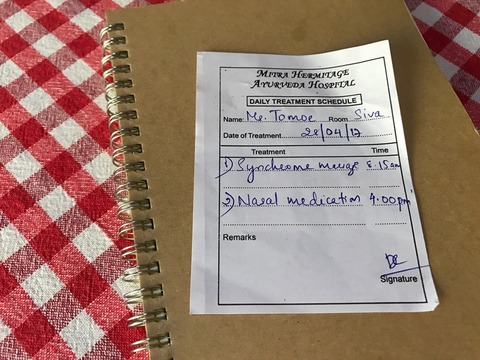 Mitra Hermitage
Ayurveda Hospital
DAILY TREATMENT SCHEDULE
Name: Ms. Tomoe Room Siva
Date of Treatment 28/04/17
Treatment Time
1) Synchrome 8.15am
2) Nasal medication 4.00pm
Remarks
Signature